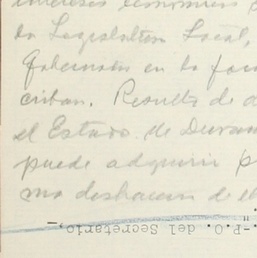 intereses económicos
la Legislatura Local,
Gobernador en la
criban. Resulta de a
el Estado de Duran
puede adquirir p
mo deshacerse de el
"-P.O. del Secretario.-